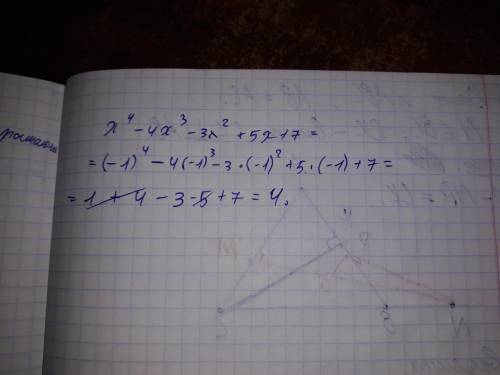 x⁴ - 4x³ - 3x² + 5x + 7 =
= (-1)⁴ - 4(-1)³ - 3·(-1)² + 5·(-1) + 7 =
= 1 + 4 - 3 - 5 + 7 = 4.